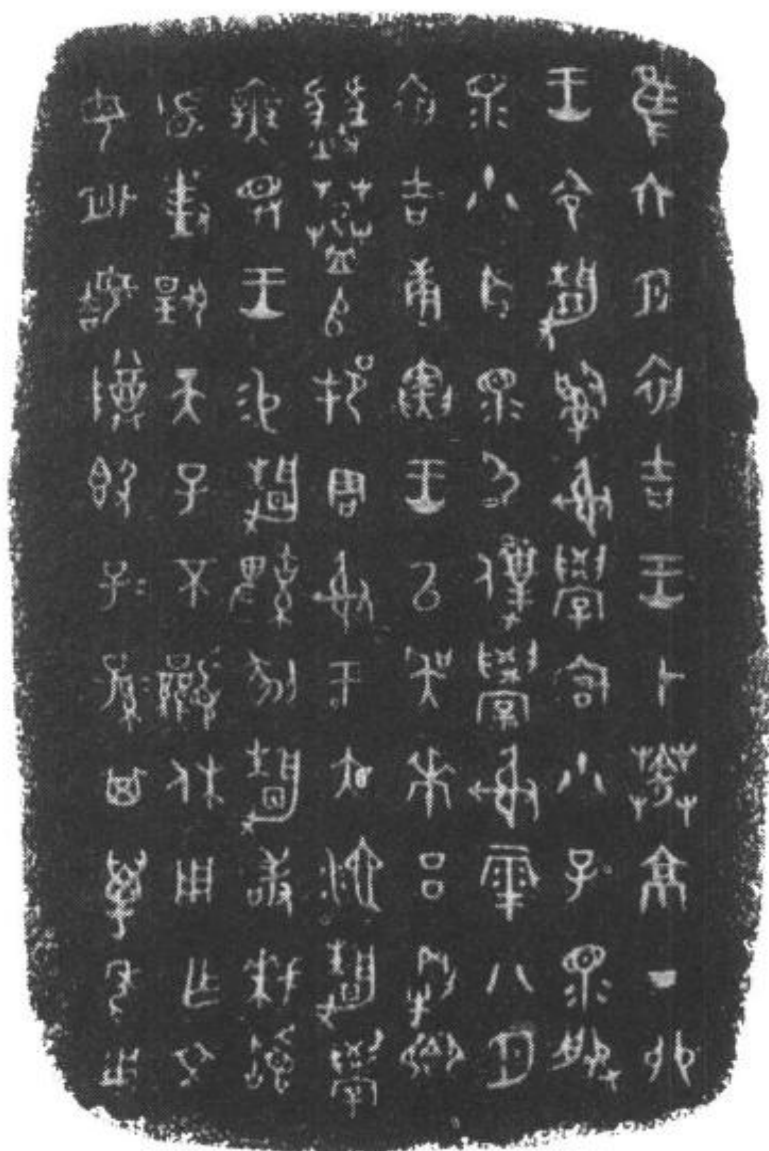 隹六月初吉王才𦮘京丁卯
王令靜𤔲射學宮小子眔服
眔小臣眔尸僕學射雩八月
初吉庚寅王以吳𠦪呂剛𠨘
豳𦮘𠂤邦周射于大池靜學
無斁王易靜鞞剢靜敢拜𩒨
首對揚天子不顯休用乍文
母外姞尊簋子=孫=其萬年用